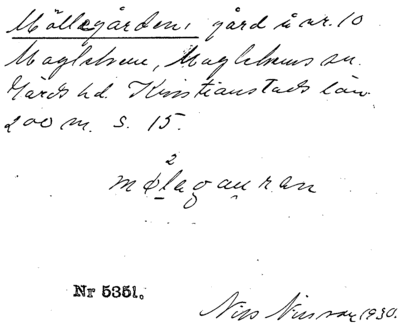 Möllegården, gård å nr. 10
Maglehem, Maglehems sn.
Gärds hd. Kristianstads län
200 m. S. 15.
2
mølagaụran
Nr 5351.
Nils Nilsson 1930.